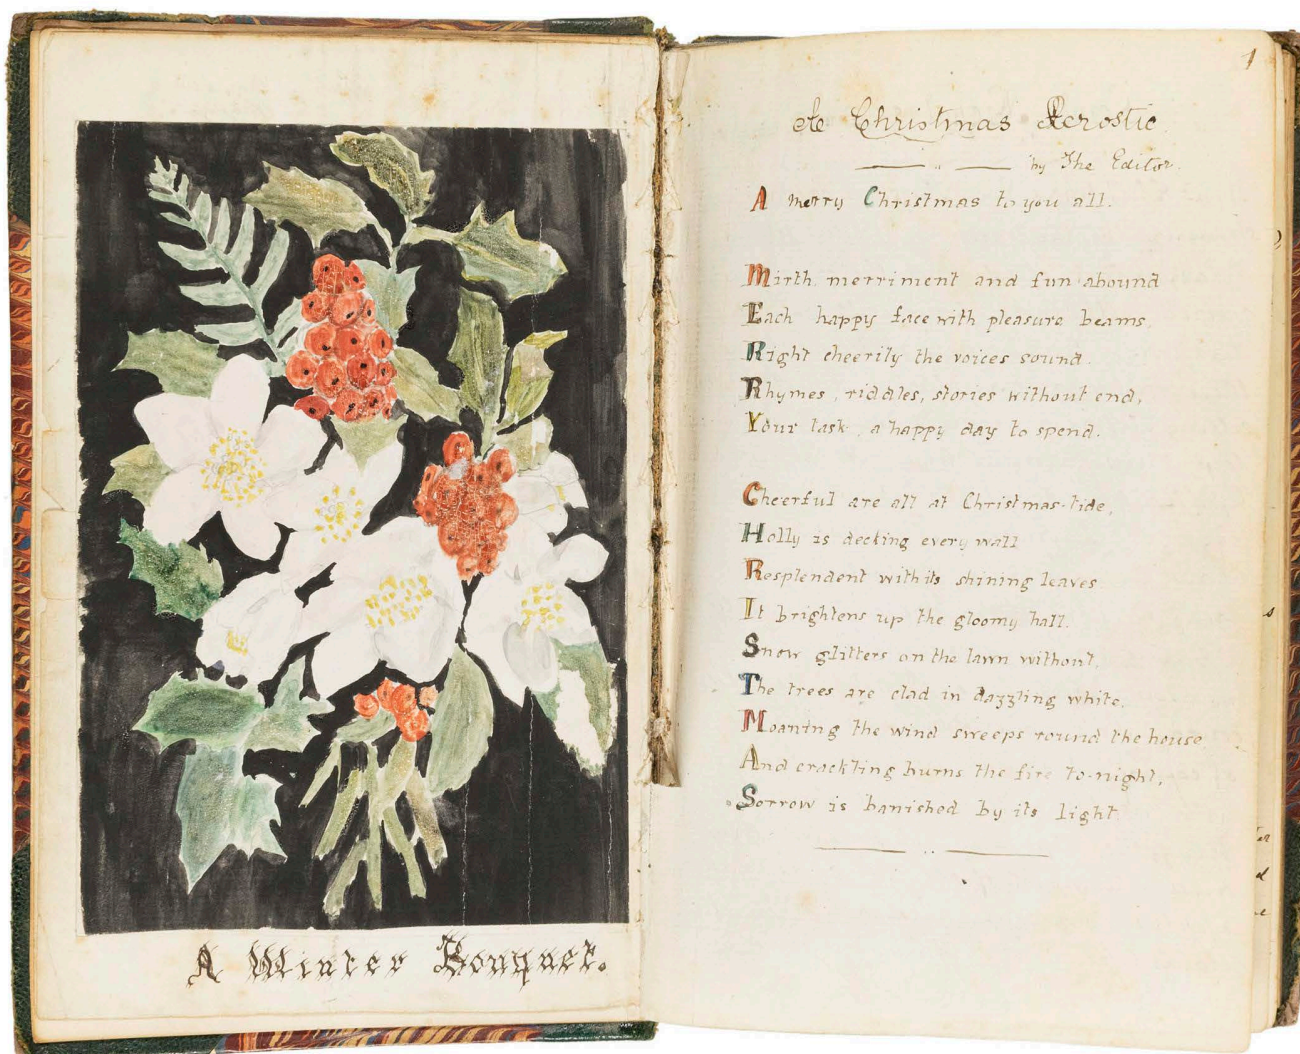 A Winter Bouquet.
1
A Christmas Acrostic
by The Editor.
A merry Christmas to you all.
Mirth, merriment and fun abound
Each happy face with pleasure beams,
Right cheerily the voices sound.
Rhymes, riddles, stories without end,
Your task, a happy day to spend.
Cheerful are all at Christmas-tide,
Holly is decking every wall
Resplendent with its shining leaves
It brightens up the gloomy hall.
Snow glitters on the lawn without,
The trees are clad in dazzling white,
Moaning the wind sweeps round the house
And crackling burns the fire to-night,
Sorrow is banished by its light